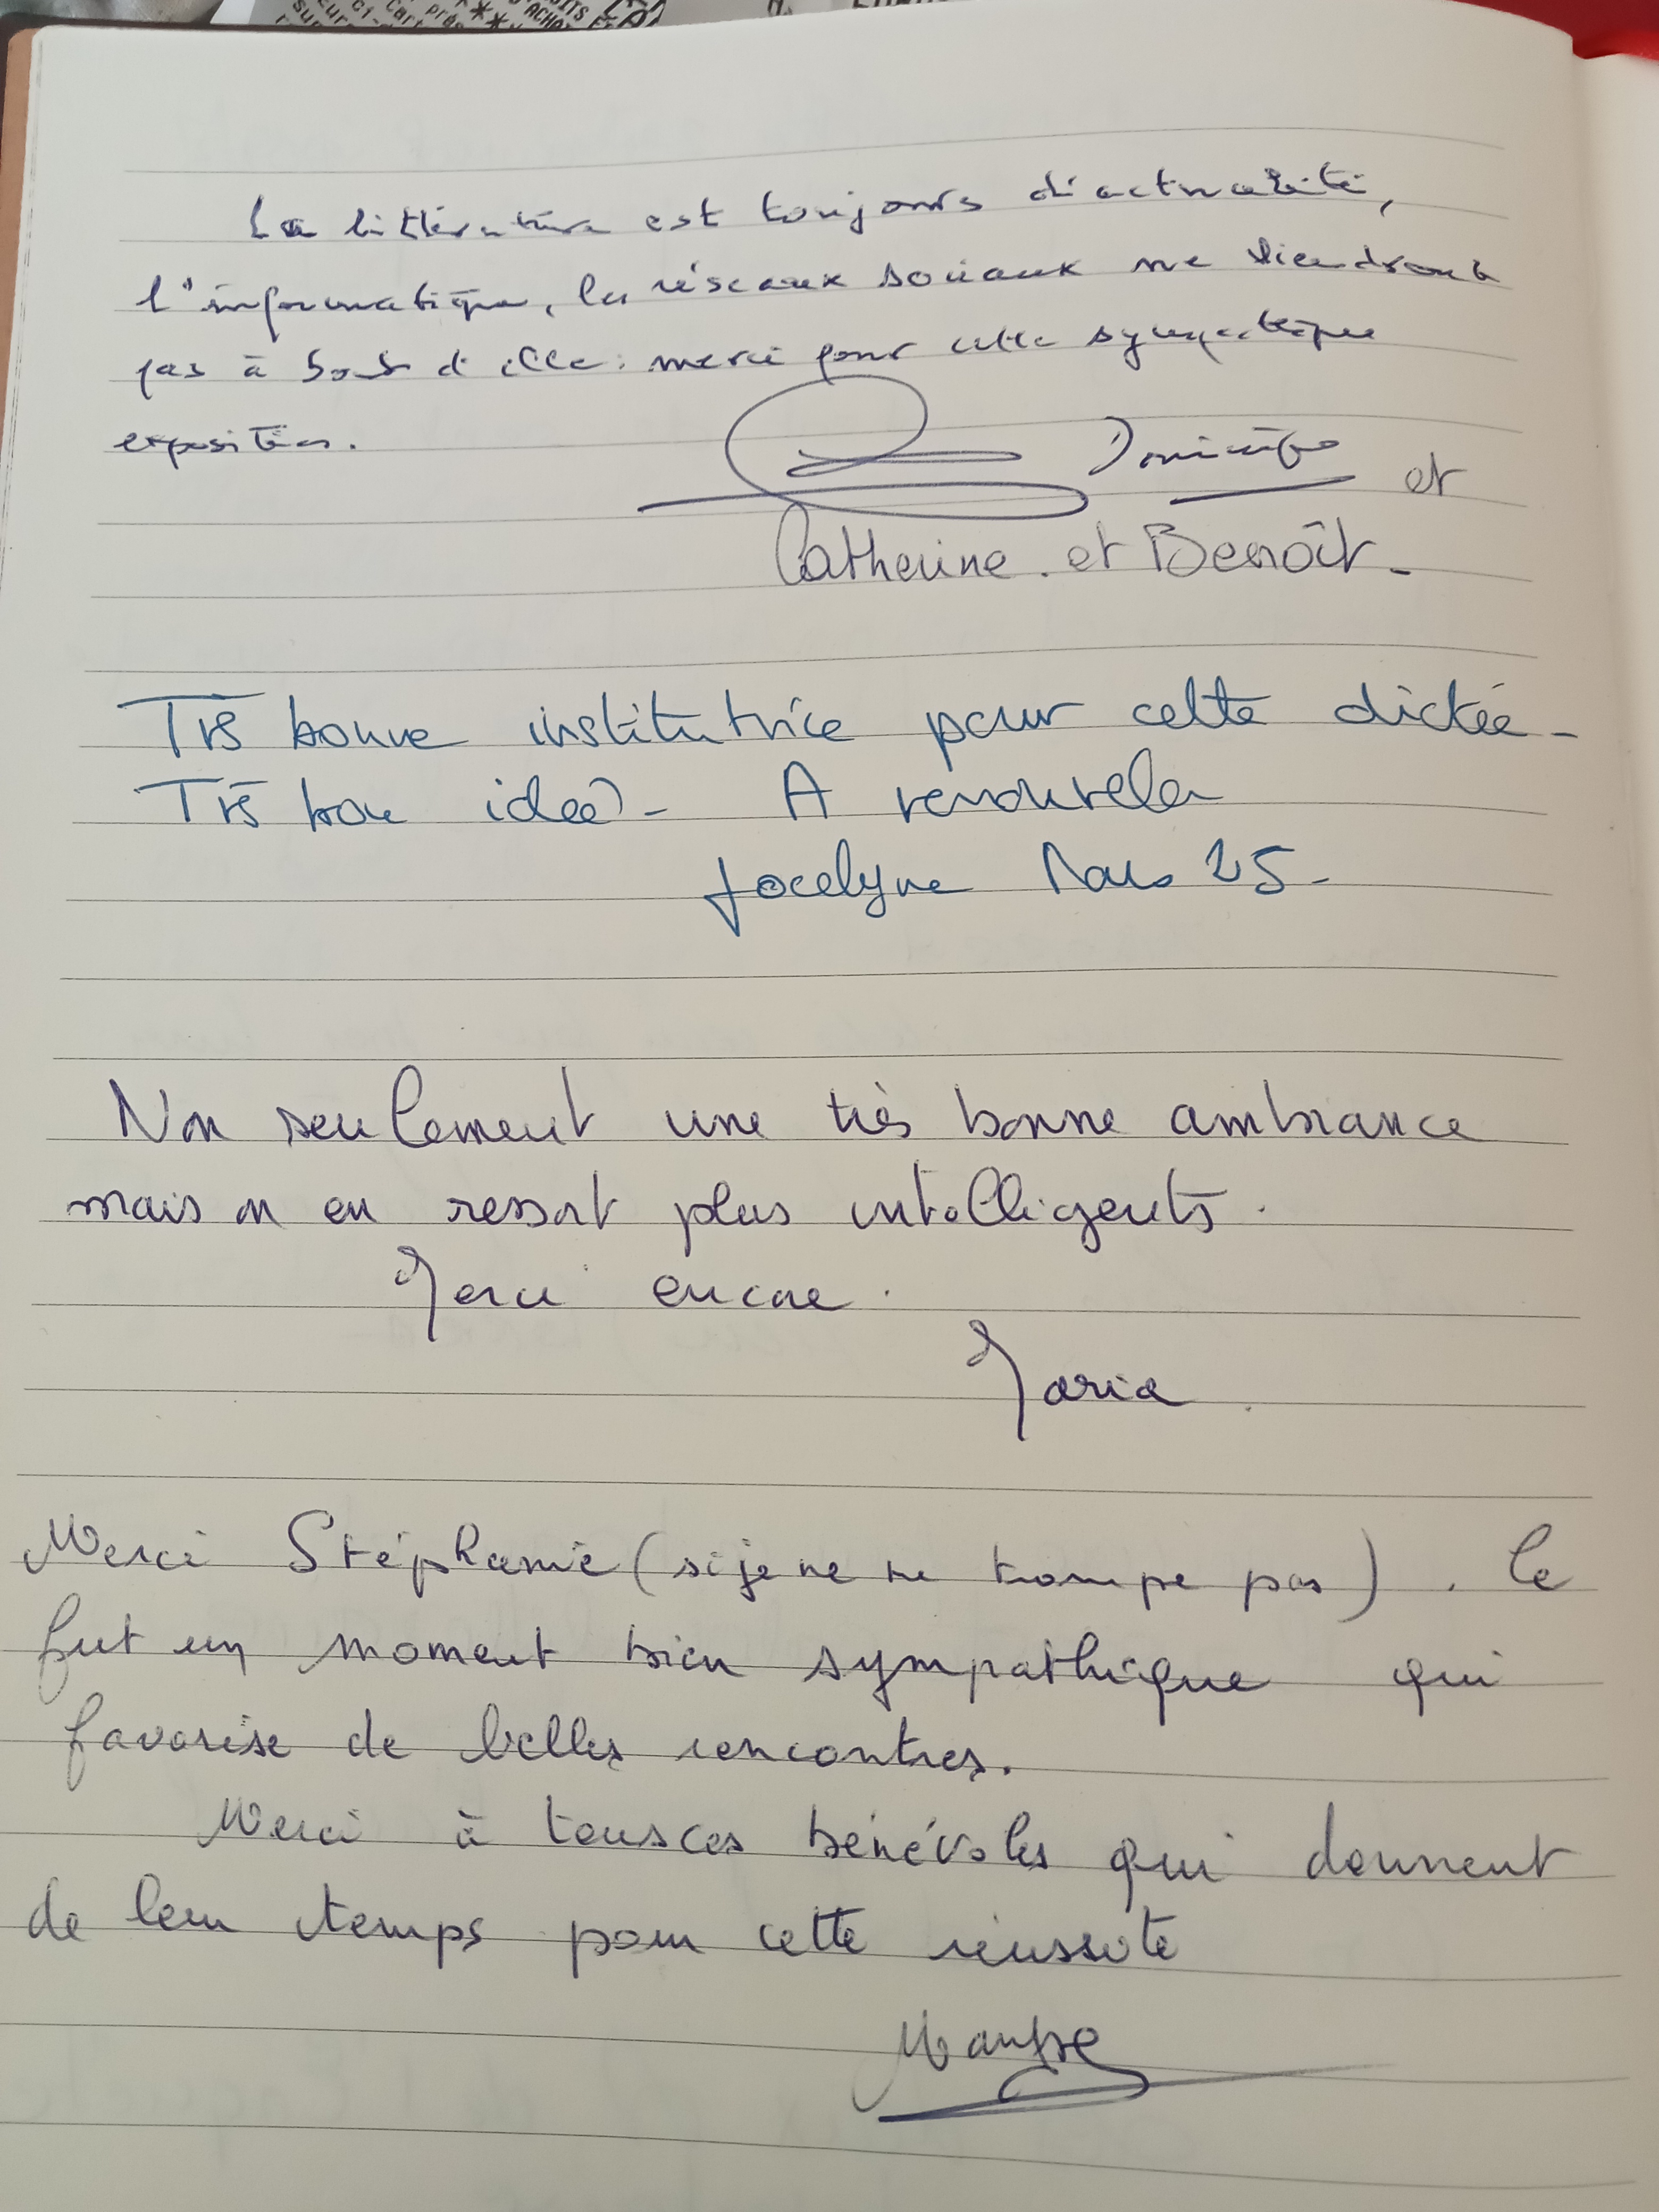 La littérature est toujours d'actualité,
l'informatique, les réseaux sociaux ne viendront
pas à bout d'elle : merci pour cette sympathique
exposition.
Dominique et
Catherine. et Benoît -
Très bonne institutrice pour cette dictée -
Très bon idée - A renouveler
Jocelyne Mars 25 -
Non seulement une très bonne ambiance
mais on en ressort plus intelligents.
Merci encore.
Maria.
Merci Stéphanie (si je ne me trompe pas). Ce
fut un moment bien sympathique qui
favorise de belles rencontres.
Merci à tous ces bénévoles qui donnent
de leur temps pour cette réussite